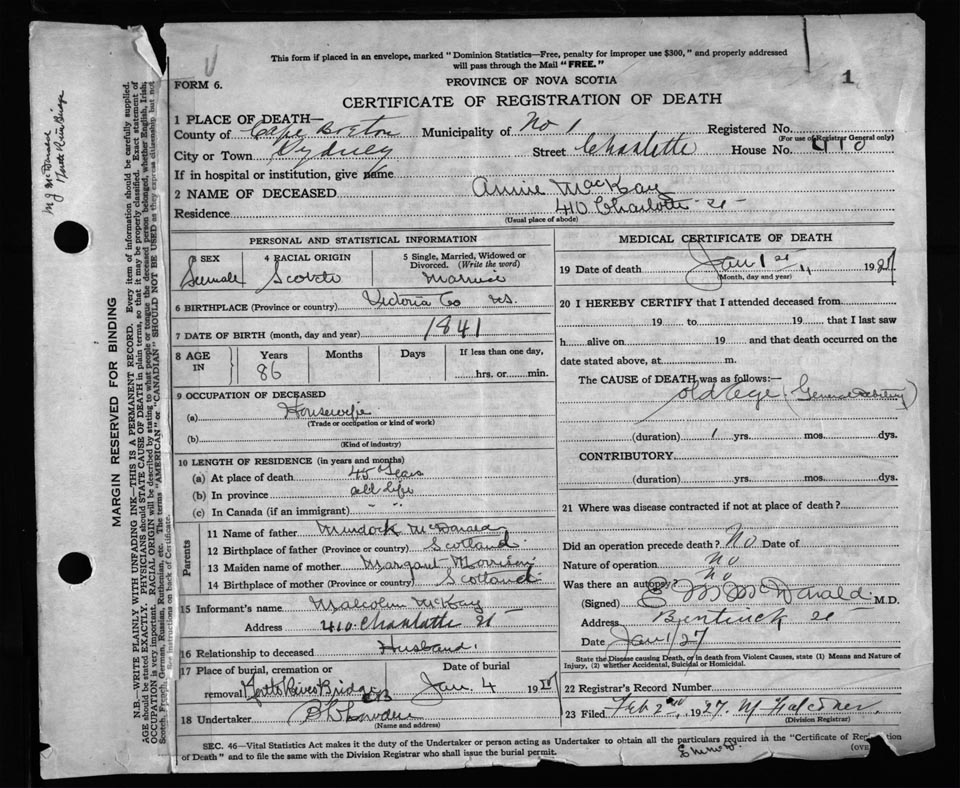 This form if placed in an envelope, marked "Dominion Statistics—Free, penalty for improper use $300," and properly addressed
will pass through the Mail "FREE."
FORM 6.
PROVINCE OF NOVA SCOTIA
1
CERTIFICATE OF REGISTRATION OF DEATH
1 PLACE OF DEATH—
County of Cape Breton Municipality of No 1 Registered No.
(For use of Registrar General only)
City or Town Sydney Street Charlotte House No. 410
If in hospital or institution, give name
2 NAME OF DECEASED Annie MacKay
Residence 410 Charlotte St
(Usual place of abode)
PERSONAL AND STATISTICAL INFORMATION
3 SEX Female
4 RACIAL ORIGIN Scotch
5 Single, Married, Widowed or Divorced. (Write the word) Married
6 BIRTHPLACE (Province or country) Victoria Co NS.
7 DATE OF BIRTH (month, day and year) 1841
8 AGE IN Years Months Days If less than one day,
86 hrs. or min.
9 OCCUPATION OF DECEASED
(a) Housewife
(Trade or occupation or kind of work)
(b)
(Kind of industry)
10 LENGTH OF RESIDENCE (in years and months)
(a) At place of death 45 Years
(b) In province all life
(c) In Canada (if an immigrant) " "
Parents
11 Name of father Murdock McDonald
12 Birthplace of father (Province or country) Scotland
13 Maiden name of mother Margaret Morrison
14 Birthplace of mother (Province or country) Scotland
15 Informant's name Malcolm McKay
Address 410 Charlotte St
16 Relationship to deceased Husband.
17 Place of burial, cremation or Date of burial
removal North River Bridge CB Jan. 4 19
18 Undertaker
(Name and address)
MEDICAL CERTIFICATE OF DEATH
19 Date of death Jan 1st 1927
(Month, day and year)
20 I HEREBY CERTIFY that I attended deceased from
19 to 19 that I last saw
h alive on 19 and that death occurred on the
date stated above, at m.
The CAUSE of DEATH was as follows:—
old age (General debility)
(duration) 1 yrs. mos. dys.
CONTRIBUTORY
(duration) yrs. mos. dys.
21 Where was disease contracted if not at place of death?
Did an operation precede death? No Date of
Nature of operation no
Was there an autopsy? No
(Signed) E M McDonald M.D.
Address Bentinck St
Date Jan 1/27
State the Disease causing Death, or in death from Violent Causes, state (1) Means and Nature of
Injury, (2) whether Accidental, Suicidal or Homicidal.
22 Registrar's Record Number
23 Filed Feb 2nd, 1927.
(Division Registrar)
SEC. 46—Vital Statistics Act makes it the duty of the Undertaker or person acting as Undertaker to obtain all the particulars required in the "Certificate of
of Death" and to file the same with the Division Registrar who shall issue the burial permit.
MARGIN RESERVED FOR BINDING
N.B.—WRITE PLAINLY WITH UNFADING INK—THIS IS A PERMANENT RECORD. Every item of information should be carefully supplied.
AGE should be stated EXACTLY. PHYSICIANS should STATE CAUSE OF DEATH in plain terms, so that it may be properly classified. Exact statement of
OCCUPATION is very important. RACIAL ORIGIN will be described by stating to what people or tongue the deceased person belonged, whether English, Irish,
Scotch, French, German, Russian, Ruthenian, etc. The terms "AMERICAN" or "CANADIAN" SHOULD NOT BE USED as they express citizenship but not
See instructions on back of Certificate.
North River Bridge